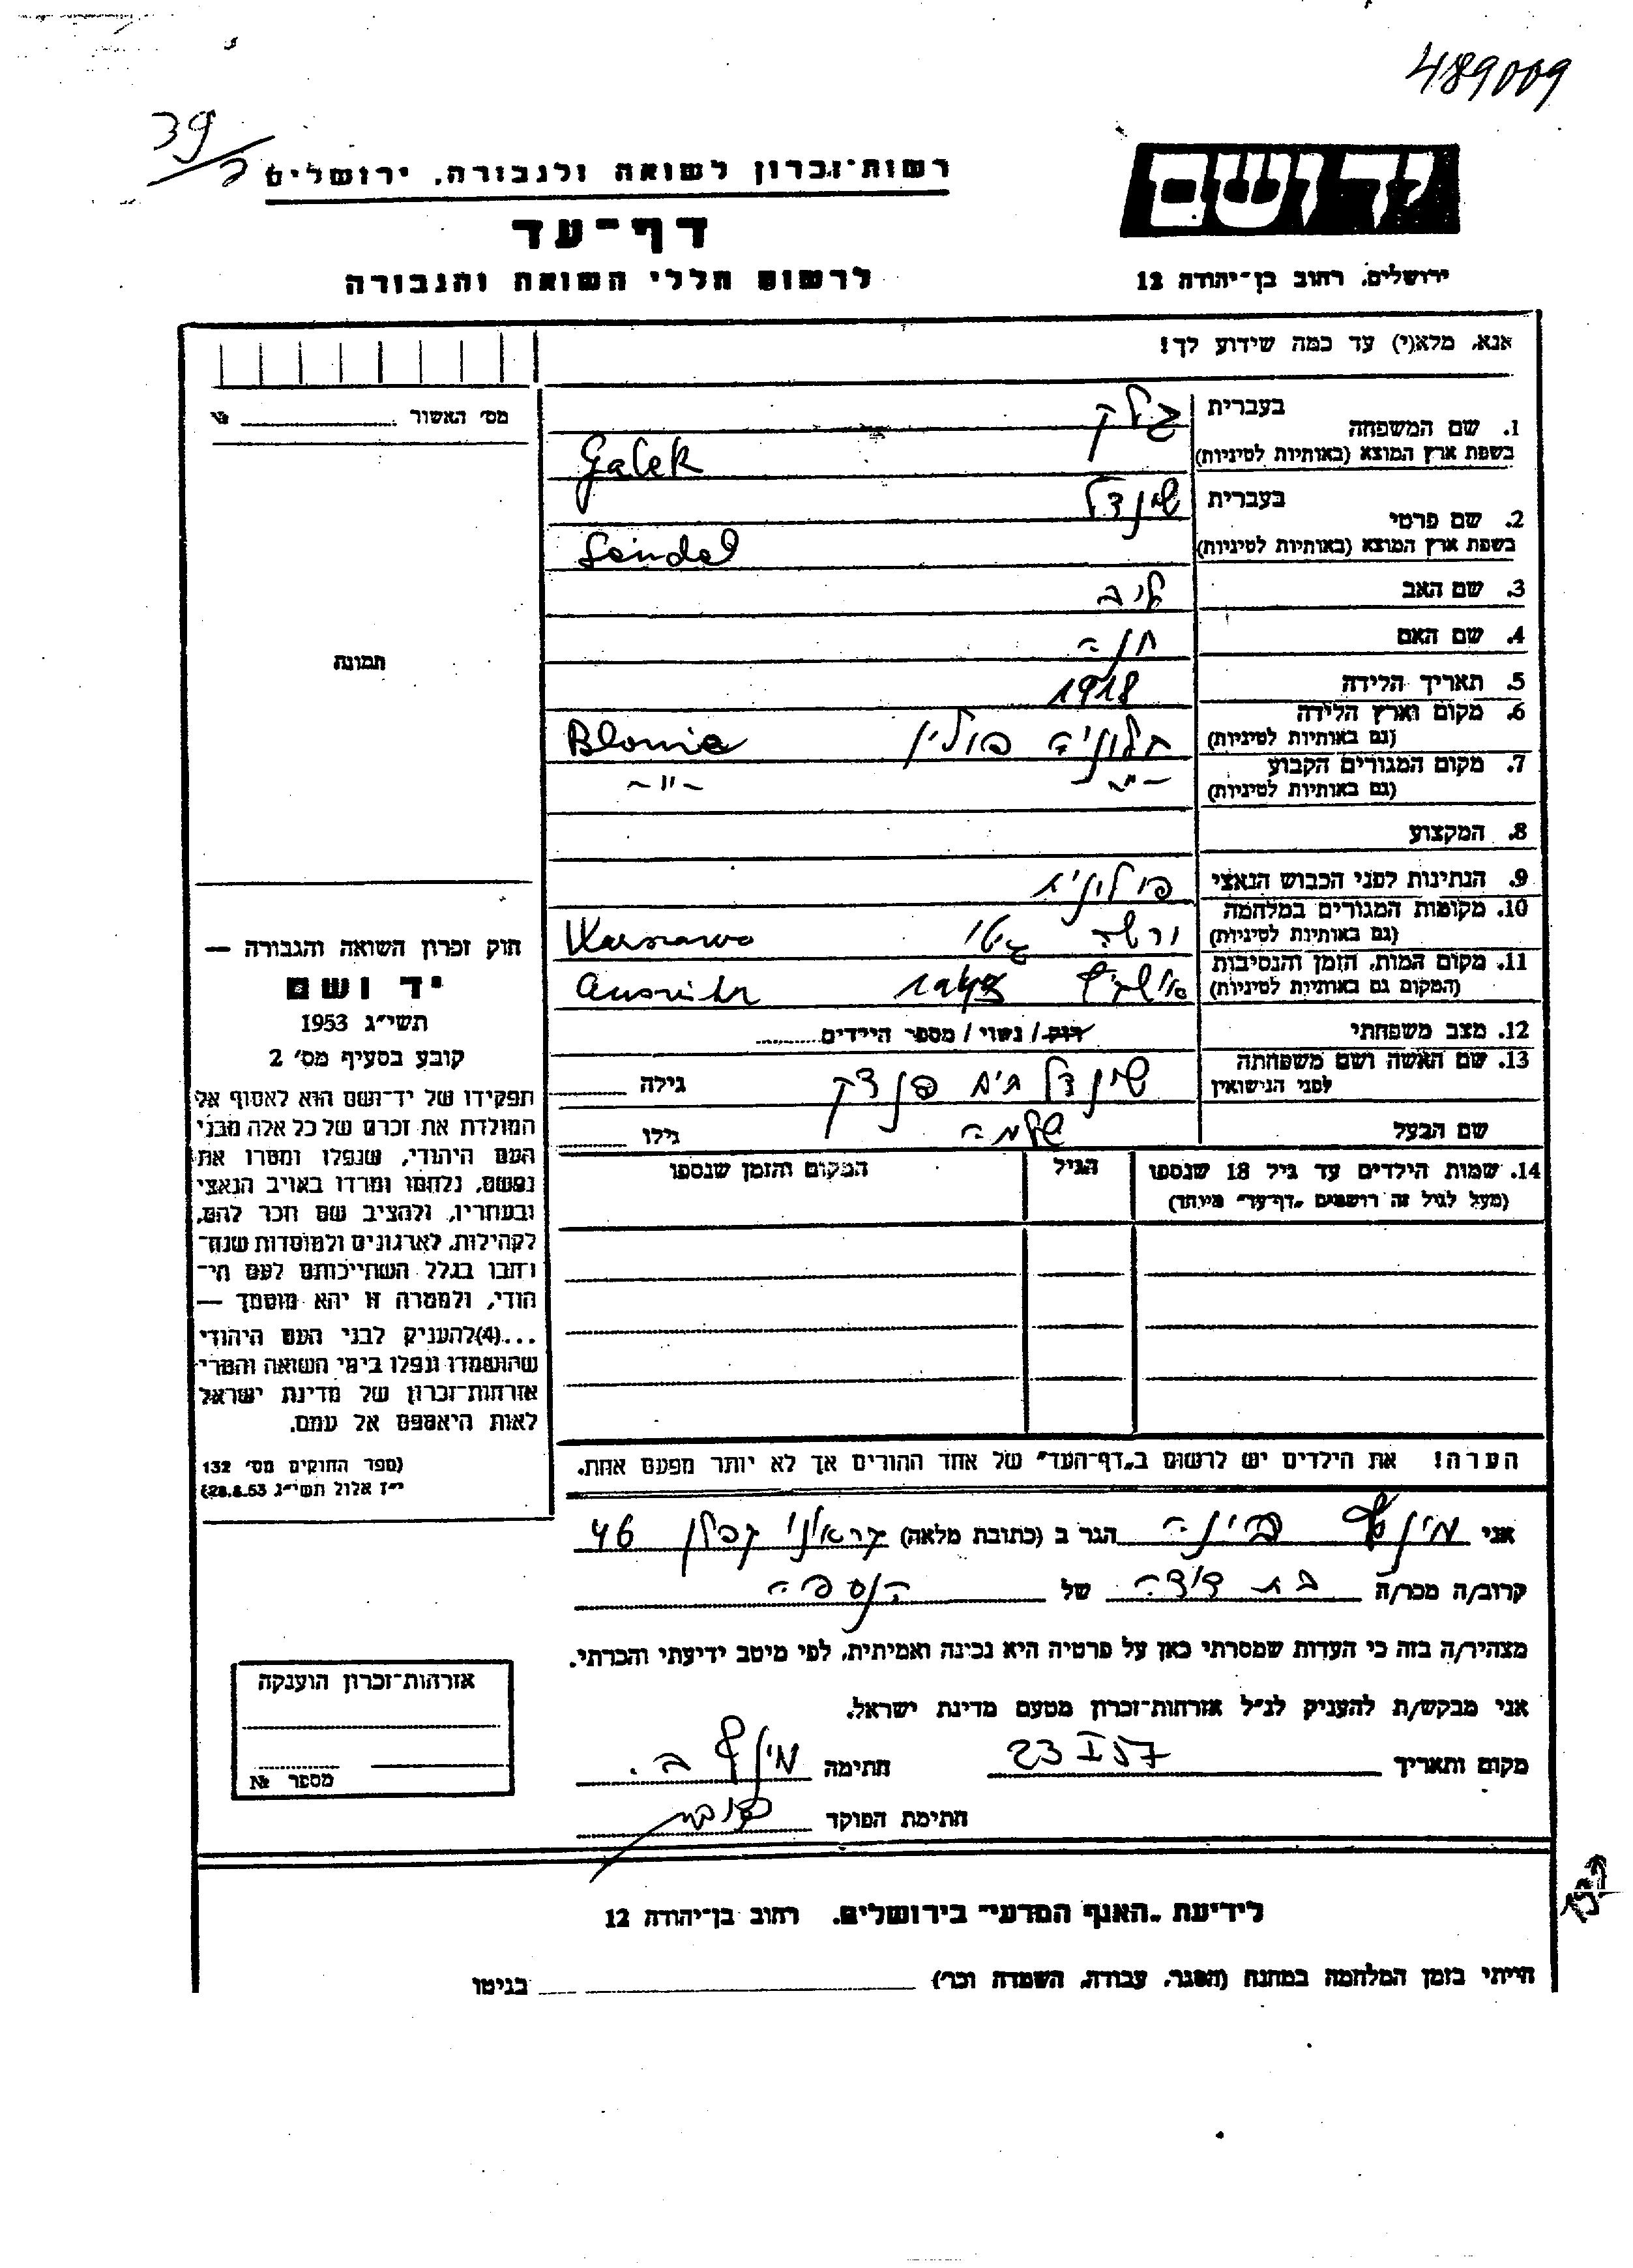 489009
39
ב
יד ושם
רשות־זכרון לשואה ולגבורה, ירושלים
דף־עד
ירושלים, רחוב בן־יהודה 12
לרשום חללי השואה והגבורה
אנא, מלא(י) עד כמה שידוע לך!
מס׳ האשור №
1. שם המשפחה
בעברית גלק
בשפת ארץ המוצא (באותיות לטיניות) Galek
2. שם פרטי
בעברית שינדל
בשפת ארץ המוצא (באותיות לטיניות) Seindel
3. שם האב לייב
4. שם האם חנה
5. תאריך הלידה 1918
6. מקום וארץ הלידה
(גם באותיות לטיניות) בלוניה פולין Blonie
7. מקום המגורים הקבוע
(גם באותיות לטיניות) -״- -״-
8. המקצוע
9. הנתינות לפני הכבוש הנאצי פולונית
10. מקומות המגורים במלחמה
(גם באותיות לטיניות) ורשה גטו Warszawa
11. מקום המות, הזמן והנסיבות
(המקום גם באותיות לטיניות) אושויץ
12. מצב משפחתי רווק / נשוי / מספר הילדים
13. שם האשה ושם משפחתה
לפני הנישואין שינדל בית פנדק גילה
שם הבעל שלמה גילו
14. שמות הילדים עד גיל 18 שנספו
(מעל לגיל זה רושמים „דף־עד״ מיוחד)
הגיל
המקום והזמן שנספו
הערה! את הילדים יש לרשום ב„דף־העד״ של אחד ההורים אך לא יותר מפעם אחת.
תמונה
חוק זכרון השואה והגבורה —
יד ושם
תשי״ג 1953
קובע בסעיף מס׳ 2
תפקידו של יד־ושם הוא לאסוף אל
המולדת את זכרם של כל אלה מבני
העם היהודי, שנפלו ומסרו את
נפשם, נלחמו ומרדו באויב הנאצי
ובעוזריו, ולהציב שם וזכר להם,
לקהילות, לארגונים ולמוסדות שנח־
רבו בגלל השתייכותם לעם הי־
הודי, ולמטרה זו יהא מוסמך —
...(4) להעניק לבני העם היהודי
שהושמדו ונפלו בימי השואה והמרי
אזרחות־זכרון של מדינת ישראל
לאות היאספם אל עמם.
(ספר החוקים מס׳ 132
י״ז אלול תשי״ג 28.8.53)
אני פינה הגר ב (כתובת מלאה) קפלן 46
קרוב/ה מכר/ה בת דודה של הנספה
מצהיר/ה בזה כי העדות שמסרתי כאן על פרטיה היא נכונה ואמיתית, לפי מיטב ידיעתי והכרתי.
אני מבקש/ת להעניק לנ״ל אזרחות־זכרון מטעם מדינת ישראל.
מקום ותאריך 23 I 57 חתימה
חתימת הפוקד
אזרחות־זכרון הוענקה
מספר №
לידיעת „האגף המדעי״ בירושלים, רחוב בן־יהודה 12
הייתי בזמן המלחמה במחנה (הסגר, עבודה, השמדה וכו׳) בגיטו